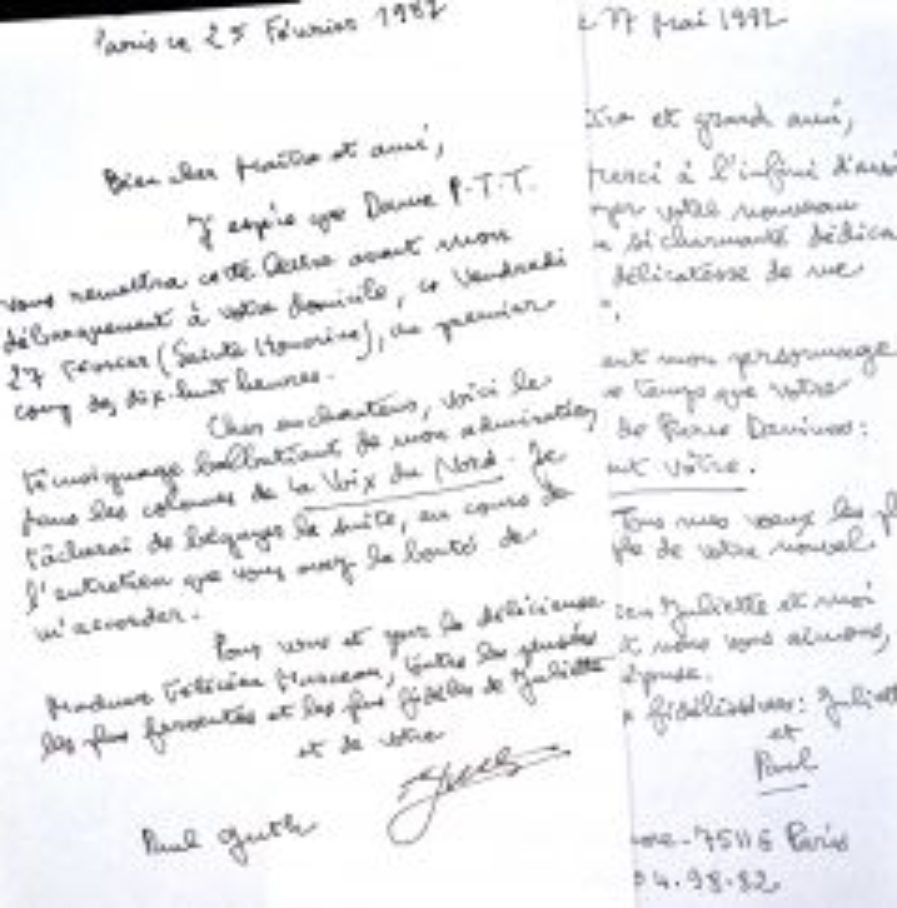 Paris ce 25 Février 1987
Bien cher Maître et ami,
J'espère que Dame P.T.T.
vous remettra cette lettre avant mon
débarquement à votre domicile, ce Vendredi
27 Février (Sainte Honorine), au premier
coup des dix-huit heures.
Cher enchanteur, voici le
témoignage balbutiant de mon admiration,
dans les colonnes de La Voix du Nord. Je
tâcherai de bégayer la suite, au cours de
l'entretien que vous avez la bonté de
m'accorder.
Pour vous et pour la délicieuse
Madame Félicien Marceau, toutes les pensées
les plus ferventes et les plus fidèles de Juliette
et de votre
Paul Guth
17 Mai 1992
et grand ami,
merci à l'infini d'avoir
votre nouveau
si charmante dédica
délicatesse de me
mon personnage
temps que votre
de Pierre Daninos:
vôtre.
Tous mes voeux les pl
de votre nouvel
Juliette et moi
nous vous aimons,
épouse.
fidélissimes: Juliett
et
Paul
75116 Paris
04.98.82.